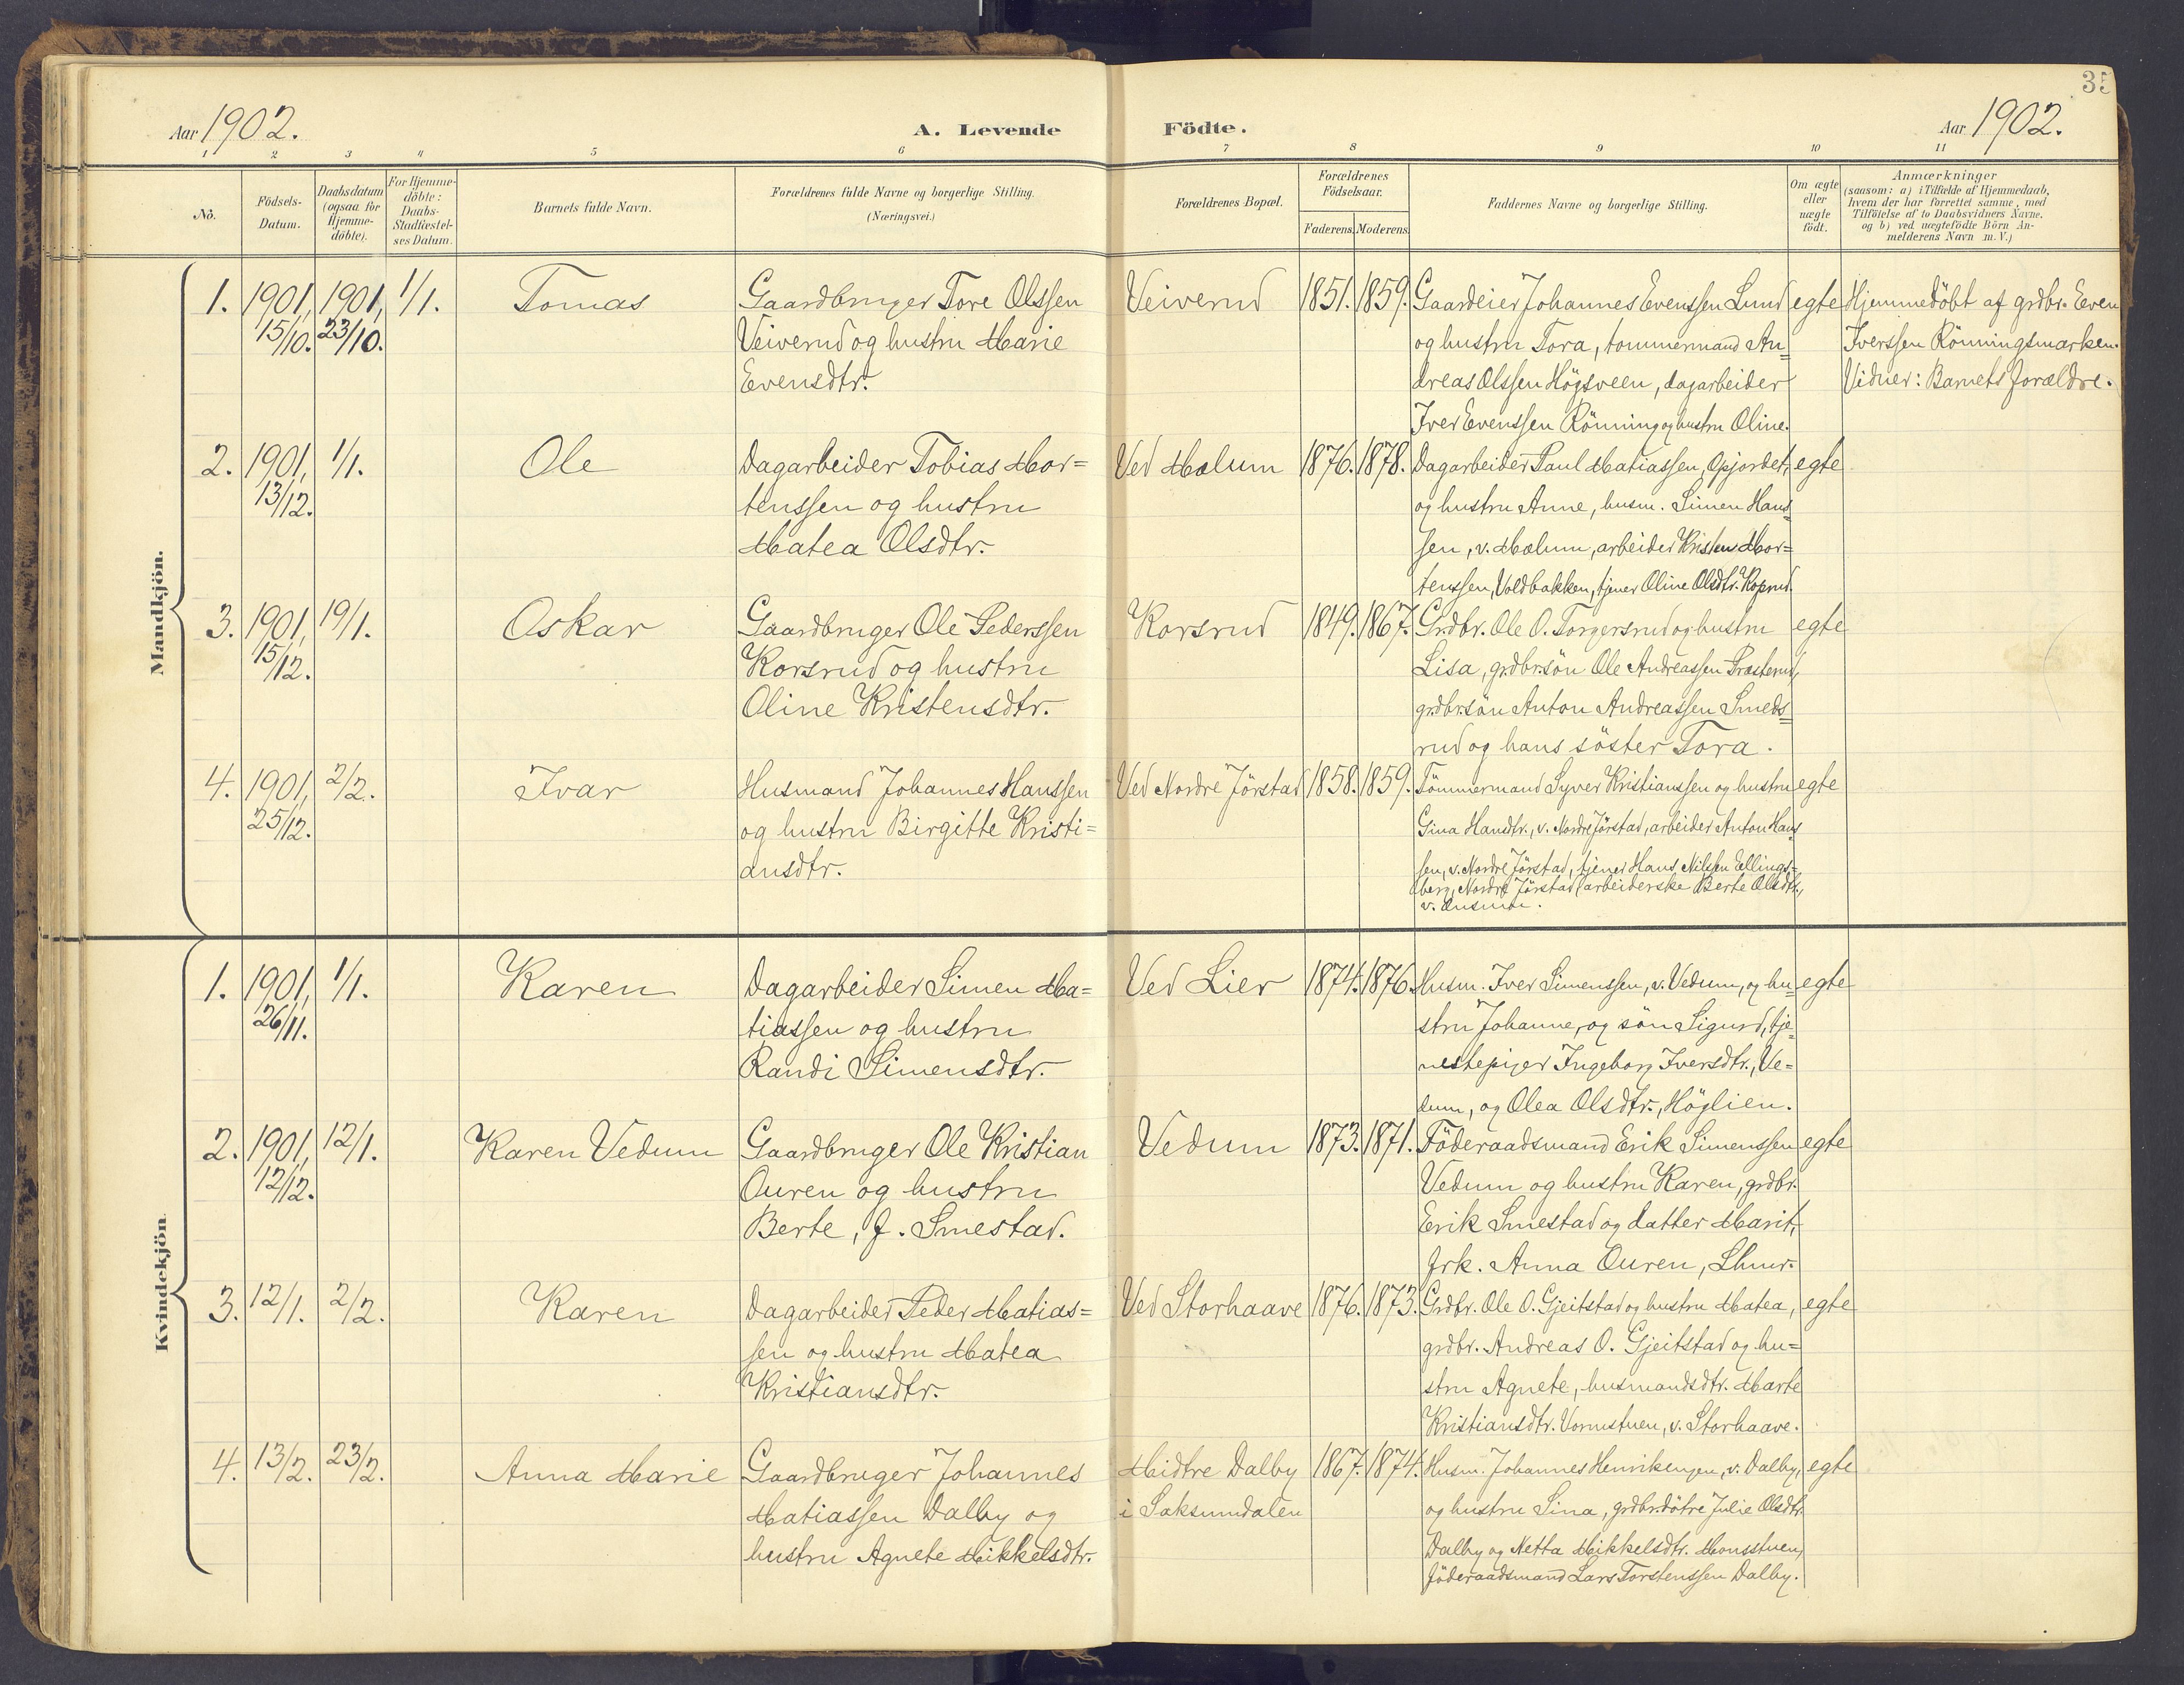 35
Aar 1902.
A. Levende Födte.
Aar 1902.
1 2 3 4 5 6 7 8 9 10 11
No.
Födsels-
Datum.
Daabsdatum
(ogsaa for
Hjemme-
döbte).
For Hjemme-
döbte:
Daabs-
Stadfæstel-
ses Datum.
Barnets fulde Navn.
Forældrenes fulde Navne og borgerlige Stilling.
(Næringsvei.)
Forældrenes Bopæl.
Forældrenes
Födselsaar.
Faderens. Moderens.
Faddernes Navne og borgerlige Stilling.
Om ægte
eller
uægte
födt.
Anmærkninger
(saasom: a) i Tilfælde af Hjemmedaab,
hvem der har forrettet samme, med
Tilföielse af to Daabsvidners Navne.
og b) ved uægtefödte Börn An-
melderens Navn m. V.)
Mandkjön.
1.
1901,
15/10.
1901,
23/10.
1/1.
Tomas
Gaardbruger Tore Olssen
Veiverud og hustru Marie
Evensdtr.
Veiverud
1851. 1859.
Gaardeier Johannes Evenssen Lund
og hustru Tora, tommermand An=
dreas Olssen Högsveen, dagarbeider
Iver Evenssen Rönning og hustru Oline.
egte
Hjemmedöbt af grdbr. Even
Iverssen Rönningsmarken.
Vidner: Barnets forældre.
2.
1901,
13/12.
1/1.
Ole
Dagarbeider Tobias Mor=
tenssen og hustru
Matea Olsdtr.
Ved Mælum
1876. 1878.
Dagarbeider Paul Matiassen, Opjordet,
og hustru Anne, husm. Simen Hans
sen, v. Mælum, arbeider Kristen Mor=
tenssen, Voldbakken, tjener Oline Olsdtr. Koprud.
egte
3.
1901,
15/12.
19/1.
Oskar
Gaardbruger Ole Pederssen
Korsrud og hustru
Oline Kristensdtr.
Korsrud
1849. 1867.
Grdbr. Ole O. Torgersrud og hustru
Lisa, grdbr.sön Ole Andreassen Præsterud,
grdbr.sön Anton Andreassen Smeds=
rud og hans söster Tora.
egte
4.
1901,
25/12.
2/2.
Ivar
Husmand Johannes Hanssen
og hustru Birgitte Kristi=
ansdtr.
Ved Nordre Jörstad
1858. 1859.
Tömmermand Syver Kristianssen og hustru
Gina Hansdtr., v. Nordre Jörstad, arbeider Anton Hans
sen, v. Nordre Jörstad, tjener Hans Nilssen Ellings=
berg, Nordre Jörstad, arbeiderske Berte Olsdtr.,
v.
egte
Kvindekjön.
1.
1901,
26/11.
1/1.
Karen
Dagarbeider Simen Ma=
tiassen og hustru
Randi Simensdtr.
Ved Lier
1874. 1876.
Husm. Iver Simenssen, v. Vedum, og hu=
stru Johanne, og sön Sigurd, tje=
nestepiger Ingeborg Iversdtr., Ve=
dum, og Olea Olsdtr., Höglien.
egte
2.
1901,
12/12.
12/1.
Karen Vedum
Gaardbruger Ole Kristian
Ouren og hustru
Berte, f. Smestad.
Vedum
1873. 1871.
Föderaadsmand Erik Simenssen
Vedum og hustru Karen, grdbr.
Erik Smestad og datter Marit,
frk. Anna Ouren, Lhmr.
egte
3.
12/1.
2/2.
Karen
Dagarbeider Peder Matias=
sen og hustru Matea
Kristiansdtr.
Ved Storhaave
1876. 1873.
Grdbr. Ole O. Gjeitstad og hustru Matea,
grdbr. Andreas O. Gjeitstad og hu=
stru Agnete, husmandsdtr. Marte
Kristiansdtr. Vornstuen, v. Storhaave.
egte
4.
13/2.
23/2.
Anna Marie
Gaardbruger Johannes
Matiassen Dalby og
hustru Agnete Mikkelsdtr.
Midtre Dalby
i Saksumdalen
1867. 1874.
Husm. Johannes Henriksen, v. Dalby,
og hustru Sina, grdbr.dötre Julie Olsdtr.
Dalby og Netta Mikkelsdtr. Monsstuen,
föderaadsmand Lars Torstenssen Dalby.
egte